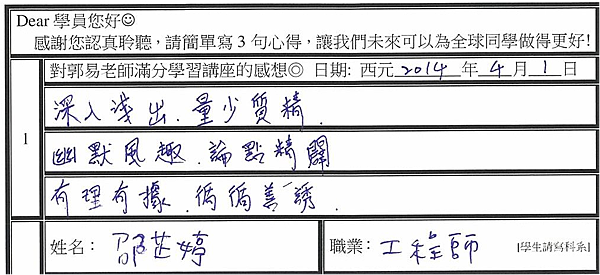 Dear 學員您好☺
感謝您認真聆聽，請簡單寫3句心得，讓我們未來可以為全球同學做得更好!
對郭易老師滿分學習講座的感想◎ 日期: 西元 2014 年 4 月 1 日
1
深入淺出．量少質精．
幽默風趣．論點精闢
有理有據．循循善誘．
姓名： 邵芷婷 職業： 工程師 [學生請寫科系]